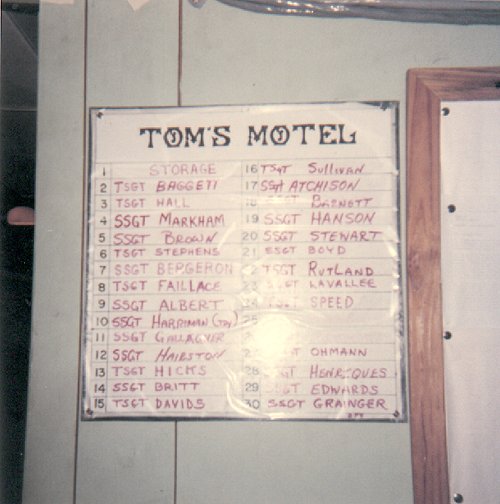 TOM'S MOTEL
1 STORAGE
2 TSGT BAGGETT
3 TSGT HALL
4 SSGT MARKHAM
5 SSGT BROWN
6 TSGT STEPHENS
7 SSGT BERGERON
8 TSGT FAILLACE
9 SSGT ALBERT
10 SSGT HARRIMAN (TDY)
11 SSGT GALLAGHER
12 SSGT HAIRSTON
13 TSGT HICKS
14 SSGT BRITT
15 TSGT DAVIDS
16 TSGT SULLIVAN
17 SSGT ATCHISON
18 SSGT BARNETT
19 SSGT HANSON
20 SSGT STEWART
21 SSGT BOYD
22 TSGT RUTLAND
23 LAVALLEE
24 TSGT SPEED
25
OHMANN
28 HENRIQUES
29 SSGT EDWARDS
30 SSGT GRAINGER